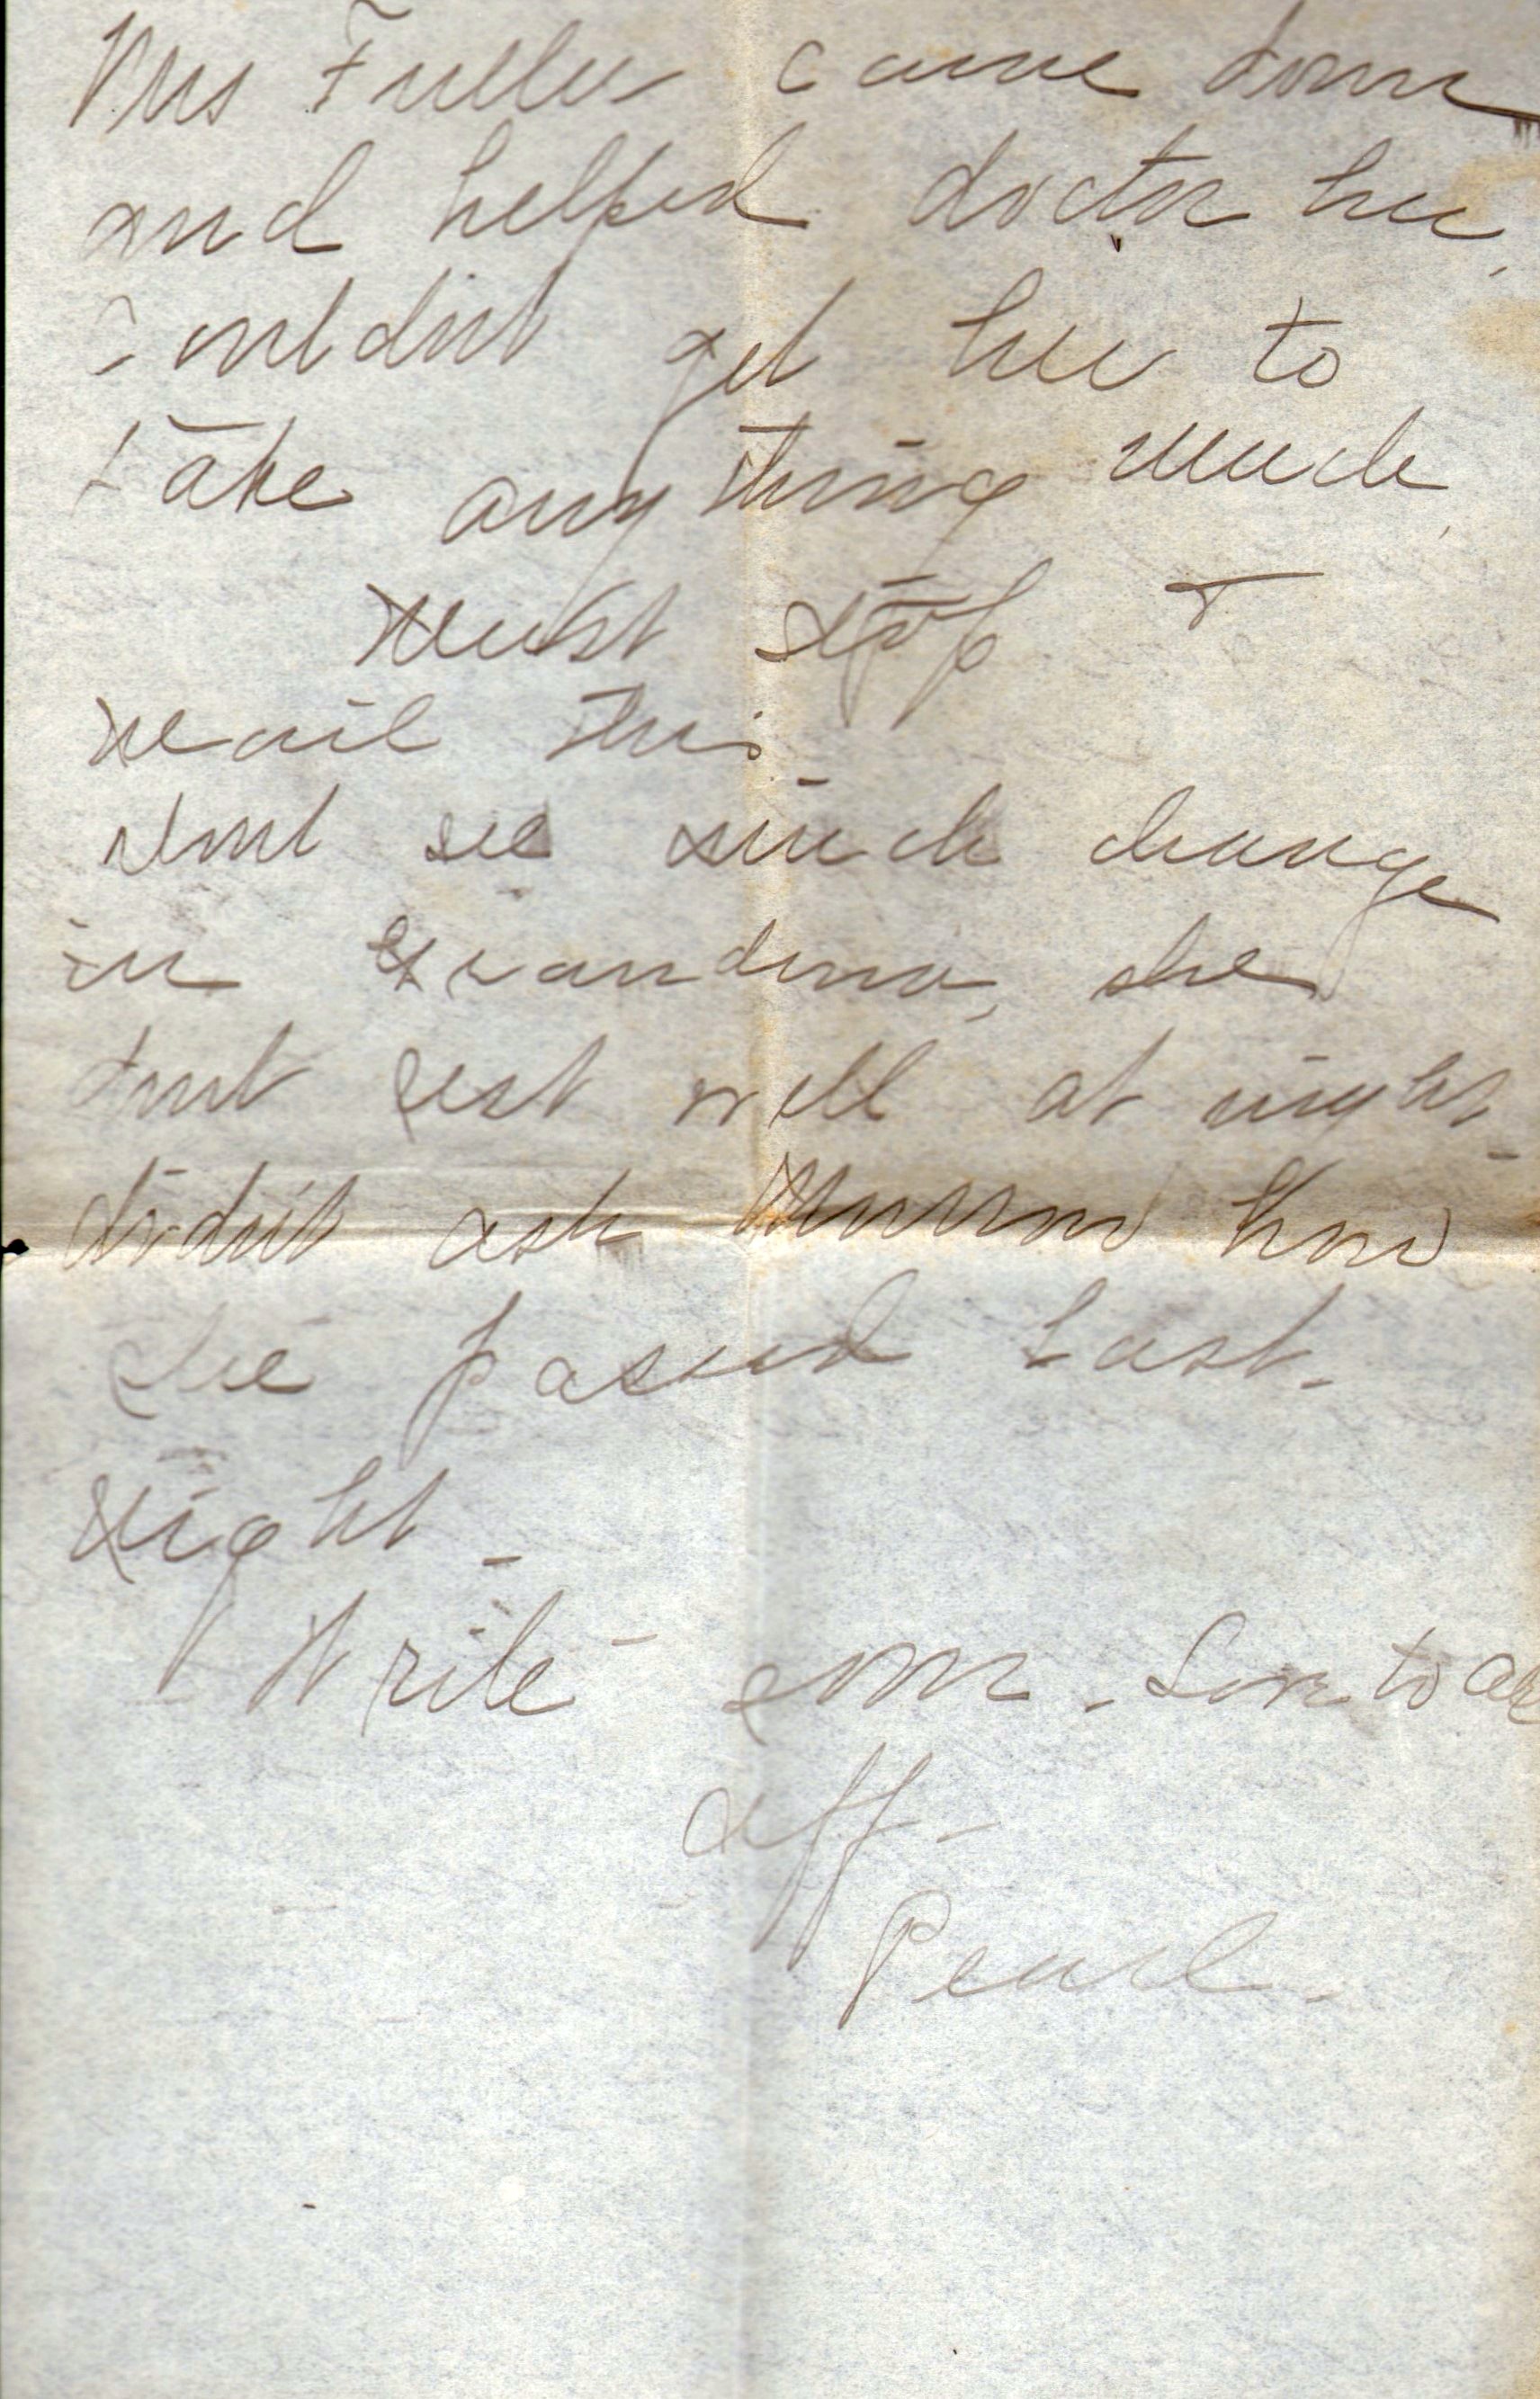 Mrs Fuller came down
and helped doctor her,
Couldnt get her to
take anything much
Must stop &
mail this.
Dont see much change
in Grandma, she
dont rest well at night -
didnt ask how
she passed last -
night -
Write soon - Love to all
aff -
Pearl -